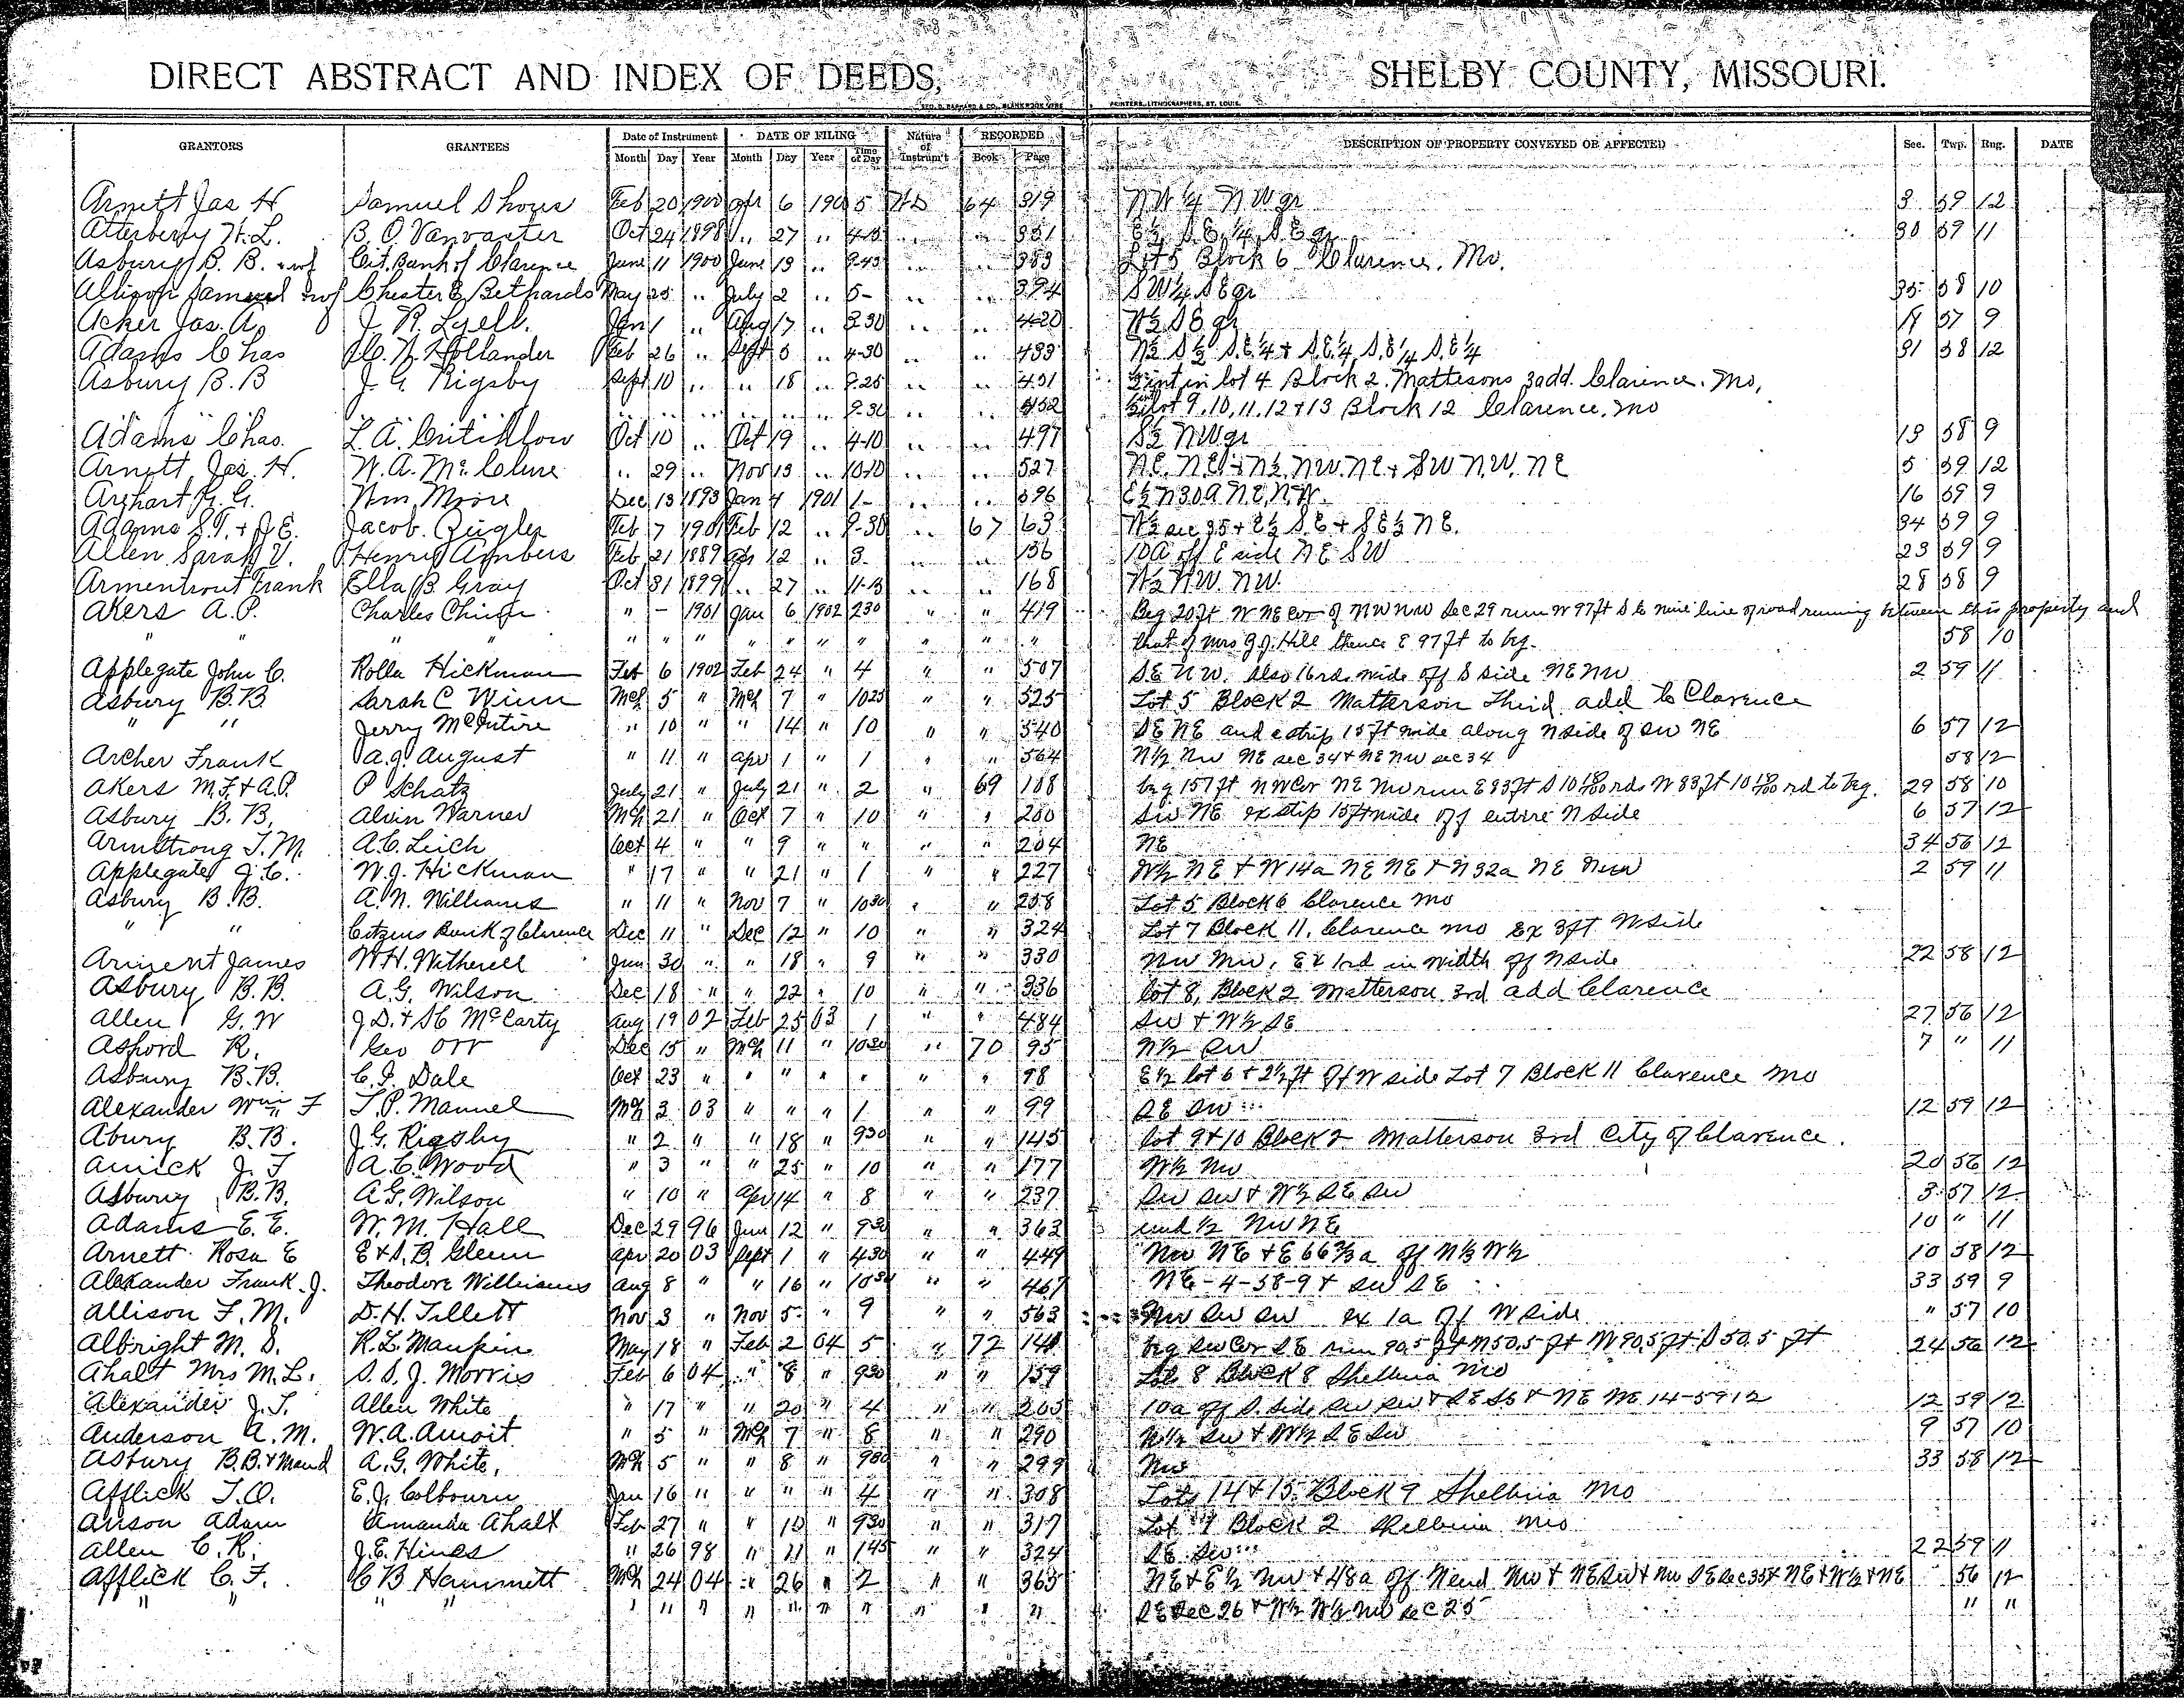 DIRECT ABSTRACT AND INDEX OF DEEDS, SHELBY COUNTY, MISSOURI.
GEO. D. BARNARD & CO., BLANK BOOK MFRS PRINTERS, LITHOGRAPHERS, ST. LOUIS.
GRANTORS GRANTEES Date of Instrument DATE OF FILING Nature of Instrum't RECORDED DESCRIPTION OF PROPERTY CONVEYED OR AFFECTED Sec. Twp. Rng. DATE
Month Day Year Month Day Year Time of Day Book Page
Arnett Jas H Samuel Shous Feb 20 1900 Apr 6 1900 5 WD 64 319 NW 1/4 NW qr 3 59 12
Atterberry W.L. B.O. Vanvacter Oct 24 1898 .. 27 .. 4-15 .. .. 351 E½ S.E. ¼ S.E qr 30 59 11
Asbury B.B. & wf Cit. Bank of Clarence June 11 1900 June 13 .. 9-45 .. .. 353 Lot 5 Block 6 Clarence. Mo.
Allison Samuel & wf Chester E Bethards May 25 .. July 2 .. 5- .. .. 394 SW¼ SE qr 35 58 10
Acker Jas. A. J. R. Lyell. Jan 1 .. Aug 17 .. 3 30 .. .. 420 W½ SE qr 14 57 9
Adams Chas Hollander Feb 26 .. Sept 5 .. 4-30 .. .. 433 N½ S½ S.E.¼ + S.E.¼ S.E ¼ S.E ¼ 31 58 12
Asbury B.B J. G. Rigsby Sept 10 .. .. 18 .. 9-25 .. .. 451 int in lot 4 Block 2. Mattesons 3 add. Clarence. Mo,
.. .. .. .. .. .. 9-30 .. .. 452 lot 9, 10, 11, 12 + 13 Block 12 Clarence, Mo
Adams Chas. L. A. Critchlow Oct 10 .. Oct 19 .. 4-10 .. .. 497 S½ NW qr 13 58 9
Arnett Jas. H. W. A. McClure .. 29 .. Nov 13 .. 10-10 .. .. 527 N.E. N.E. + N½ NW. NE + SW N.W. NE 5 59 12
Arghart G. Wm Moore Dec 13 1893 Jan 4 1901 1- .. .. 596 E½ N 30 A N.E. N.W. 16 59 9
Adams S.T. + J.E. Jacob Zeigler Feb 7 1901 Feb 12 .. 9-30 .. 67 63 W½ sec 35 + E½ S.E + S E½ NE. 34 59 9
Allen Sarah V. Henry Ambers Feb 21 1889 Apr 12 .. 3. .. .. 156 10A off E side NE SW 23 59 9
Armentrout Frank Ella B. Gray Oct 31 1899 .. 27 .. 11-15 .. .. 168 W½ NW. NW. 28 58 9
Akers A.P. Charles Chinn " - 1901 Jan 6 1902 230 " " 419 Beg 20 ft W NE cor of NW NW Sec 29 run W 97 ft S to line of road running between this property and
" " " " " " " " " " " " " that of Mrs G.J. Hill thence E 97 ft to beg. 58 10
Applegate John C. Rolla Hickman Feb 6 1902 Feb 24 " 4 " " 507 SE NW. also 16 rds wide off S side NE NW 2 59 11
Asbury B.B. Sarah C Winn Mch 5 " Mch 7 " 1025 " " 525 Lot 5 Block 2 Matterson Third add to Clarence
" " Jerry McIntire " 10 " " 14 " 10 " " 540 SE NE and a strip 15 ft wide along N side of SW NE 6 57 12
Archer Frank A.J. August " 11 " Apr 1 " 1 " " 564 N½ NW NE sec 34 + NE NW sec 34 58 12
Akers M.F. + A.P. P Schatz July 21 " July 21 " 2 " 69 108 beg 157 ft NW Cor NE NW run E 83 ft S 10 rds W 83 ft 10 rd to beg. 29 58 10
Asbury B.B. Alvin Warner Mch 21 " Oct 7 " 10 " " 200 SW NE ex strip 15 ft wide off entire N side 6 57 12
Armstrong T.M. A.C. Leich Oct 4 " " 9 " " " " 204 NE 34 56 12
Applegate J.C. W.J. Hickman " 17 " " 21 " 1 " " 227 W½ NE + W 14a NE NE + N 32a NE NW 2 59 11
Asbury B.B. A.N. Williams " 11 " Nov 7 " 1030 " " 258 Lot 5 Block 6 Clarence Mo
" " Citizens Bank of Clarence Dec 11 " Dec 12 " 10 " " 324 Lot 7 Block 11. Clarence Mo Ex 3 ft W side
Arment James W.H. Witherell Jun 30 " " 18 " 9 " " 330 NW NW, Ex 1 rd in width off N side 22 58 12
Asbury B.B. A.G. Wilson Dec 18 " " 22 " 10 " " 336 lot 8, Block 2 Matterson 3rd add Clarence
Allen G.W J.D. + S.C McCarty Aug 19 02 Feb 25 03 1 " " 484 SW + W½ SE 27 56 12
Asford R. Geo Orr Dec 15 " Mch 11 " 1030 " 70 95 N½ SW 7 " 11
Asbury B.B. C.I. Dale Oct 23 " " " " " " " 98 E½ lot 6 + 2½ ft off W side Lot 7 Block 11 Clarence Mo
Alexander Wm F T.P. Manuel Mch 3 03 " " " 1 " " 99 SE SW 12 59 12
Abury B.B. J.G. Rigsby " 2 " " 18 " 930 " " 145 lot 9 + 10 Block 2 Matterson 3rd City of Clarence.
Amick J.T A.C. Wood " 3 " " 25 " 10 " " 177 W½ NW 20 56 12
Asbury B.B. A.G. Wilson " 10 " Apr 14 " 8 " " 237 SW SW + W½ SE SW 3 57 12
Adams E.E. W.M. Hall Dec 29 96 Jun 12 " 930 " " 363 und ½ NW NE 10 " 11
Arnett Rosa E E + S.B. Glenn Apr 20 03 Sept 1 " 430 " " 449 NW NE + E 66⅔a off N½ W½ 10 58 12
Alexander Frank J. Theodore Williams Aug 8 " " 16 " 1030 " " 467 NE-4-58-9 + SW SE 33 59 9
Allison F.M. D.H. Tillett Nov 3 " Nov 5 " 9 " " 563 NW SW SW ex 1a off W side " 57 10
Albright M.S. R.L. Maupin May 18 " Feb 2 04 5 " 72 140 beg SW Cor SE run 90.5 ft N 50.5 ft W 90.5 ft S 50.5 ft 24 56 12
Ahalt Mrs M.L. S.S.J. Morris Feb 6 04 " 8 " 930 " " 159 Lot 8 Block 8 Shelbina Mo
Alexander J.T. Allen White " 17 " " 20 " 4 " " 205 10a off S. side SW SW + SE SE + NE NE 14-59 12 12 59 12
Anderson A.M. W.A. Amoit " 5 " Mch 7 " 8 " " 290 N½ SW + W½ SE SW 9 57 10
Asbury B.B. + Maud A.G. White, Mch 5 " " 8 " 900 " " 299 NW 33 58 12
Afflick T.O. E.J. Colbourn Jan 16 " " " " 4 " " 308 Lots 14 + 15 Block 9 Shelbina Mo
Anson Adam Amanda Ahalt Feb 27 " " 10 " 930 " " 317 Lot 7 Block 2 Shelbina Mo
Allen C.R. J.E. Hines " 26 98 " 21 " 145 " " 324 SE SW 22 59 11
Afflick C.F. C B Hammett Mch 24 04 " 26 " 2 " " 365 NE + E½ NW + 48a off W end NW + NE SW + NW SE Sec 35 + NE + W½ + NE 56 12
" " " " " " " " " " " " " " SE Sec 26 + W½ W½ NW Sec 25 " "